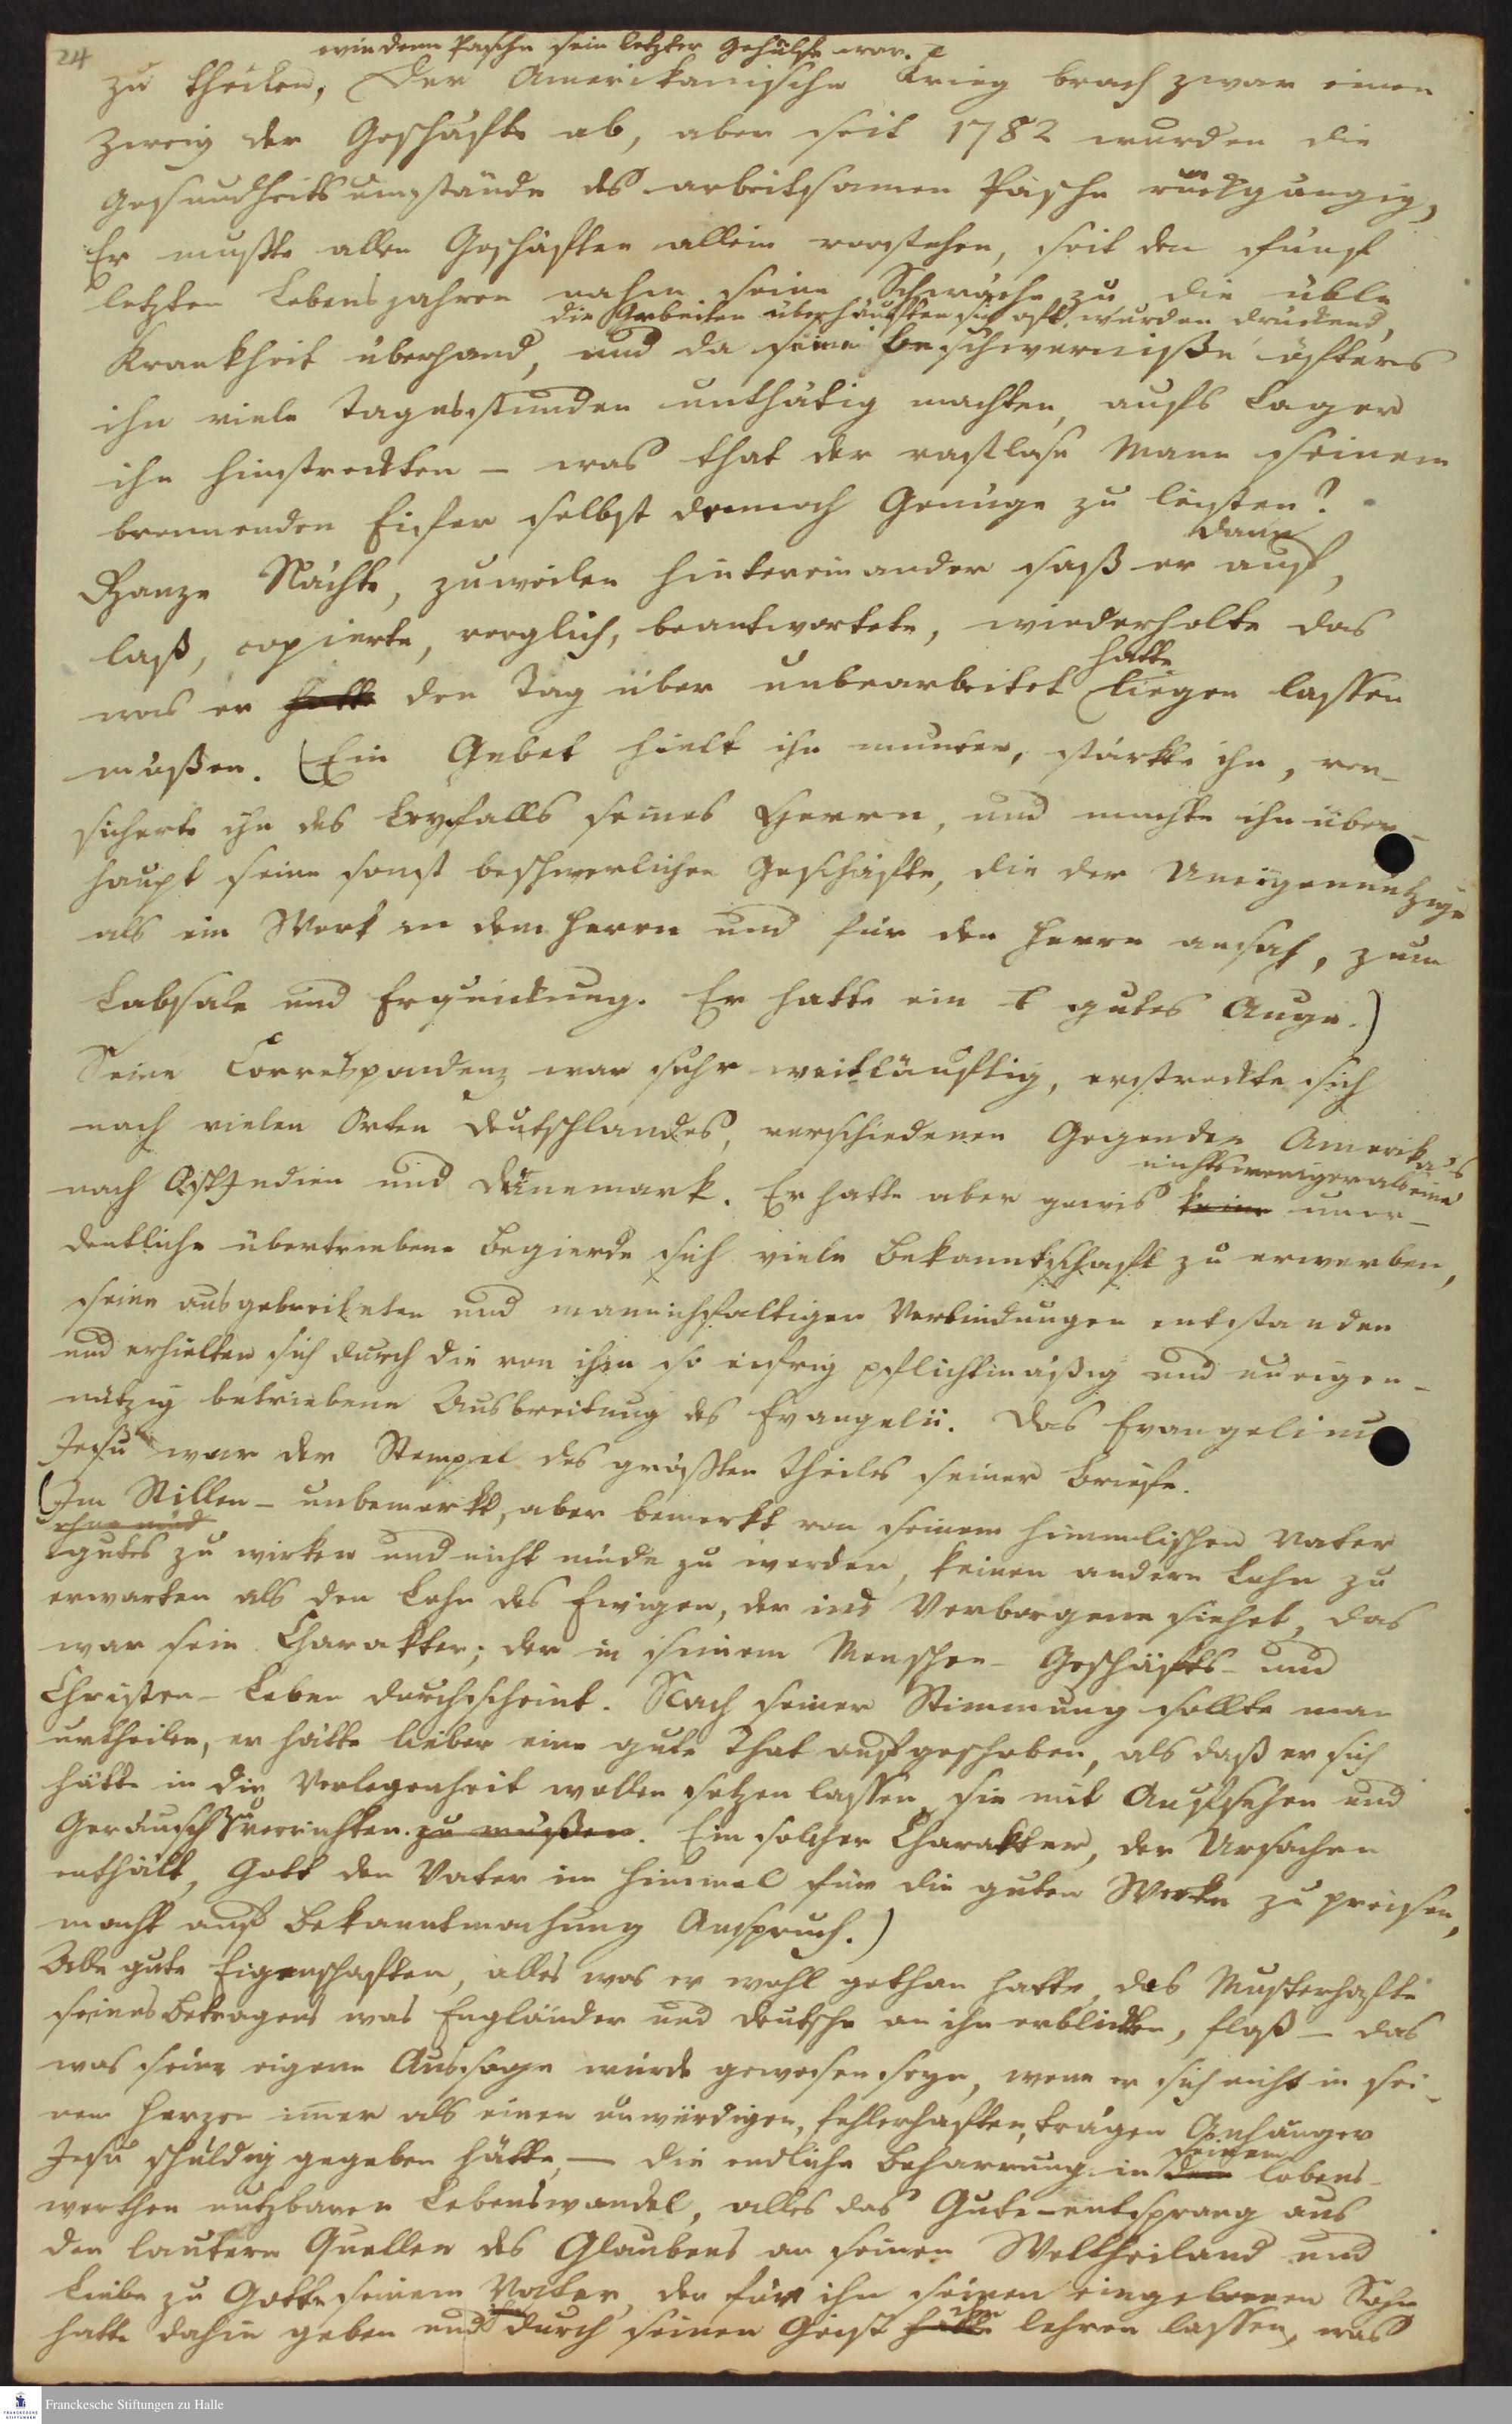 24
wie denn Pasche sein letzter Gehülfe war.
zu theilen, Der Amerikanische Krieg brach zwar einen
Zweig der Geschäfte ab, aber seit 1782 wurden die
Gesundheitsumstände des arbeitsamen Pasche rückgängig,
Er mußte allen Geschäften allein vorstehen, seit den fünf
letzten Lebensjahren nahm seine Schwäche zu, die üble
die Arbeiten überhäuften sich oft, wurden drückend,
Krankheit überhand, und da seine Beschwerniße öfters
ihn viele Tagesstunden unthätig machten, aufs Lager
ihn hinstreckten – was that der rastlose Mann seinem
brennenden Eifer selbst dennoch Genüge zu leisten?
dann
Ganze Nächte, zuweilen hintereinander saß er auf,
laß, copierte, verglich, beantwortete, wiederholte das
hatte
was er hatte den Tag über unbearbeitet liegen lassen
müßen. (Ein Gebet hielt ihn munter, stärkte ihn, ver-
sicherte ihn des Beyfalls seines Herrn, und machte ihm über-
haupt seine sonst beschwerlichen Geschäfte, die der Uneigennützige
als ein Werk in dem Herrn und für den Herrn ansah, zum
Labsale und Erquickung. Er hatte ein gutes Auge.)
Seine Correspondenz war sehr weitläuftig, erstreckte sich
nach vielen Orten Deutschlandes, verschiedenen Gegenden Amerikas
nichts weniger als eine
nach OstIndien und Dännemark. Er hatte aber gewis keine unor-
dentliche übertriebene Begierde sich viele Bekanntschaft zu erwerben,
seine ausgebreiteten und mannichfaltigen Verbindungen entstanden
und erhielten sich durch die von ihm so eifrig pflichtmäßig und uneigen-
nützig betriebene Ausbreitung des Evangelii. Das Evangelium
Jesu war der Stempel des größten Theiles seiner Briefe.
(Im Stillen – unbemerkt, aber bemerkt von seinem himmlischen Vater
ohne müd
gutes zu wirken und nicht müde zu werden, keinen andern Lohn zu
erwarten als den Lohn des Ewigen, der ins Verborgene siehet, das
war sein Charakter; der in seinem Menschen- Geschäfts- und
Christen-Leben durchscheint. Nach seiner Stimmung sollte man
urtheilen, er hätte lieber eine gute That aufgeschoben, als daß er sich
hätte in die Verlegenheit wollen setzen lassen, sie mit Aufsehen und
Geräusch zu verrichten. zu müßen. Ein solcher Charakter, der Ursachen
enthält, Gott den Vater im Himmel für die guten Werke zu preisen,
macht auf Bekanntmachung Anspruch.)
Alle gute Eigenschaften, alles was er wohl gethan hatte, das Musterhafte
seines Betragens was Engländer und Deutsche an ihm erblickten, floß – das
was seine eigene Aussage würde gewesen seyn, wenn er sich nicht in sei-
nem Herzen imer als einen unwürdigen, fehlerhaften, trägen Anhänger
Jesu schuldig gegeben hätte, – die endliche Beharrung in
seinem
dem lobens-
werthen nutzbaren Lebenswandel, alles das Gute – entsprang aus
den lautern Quellen des Glaubens an seinen Weltheiland und
Liebe zu Gotte seinem Vater, der für ihn seinen eingebornen Sohn
hatte dahin geben und ihn durch seinen Geist hatte lehren lassen, was
Franckesche Stiftungen zu Halle